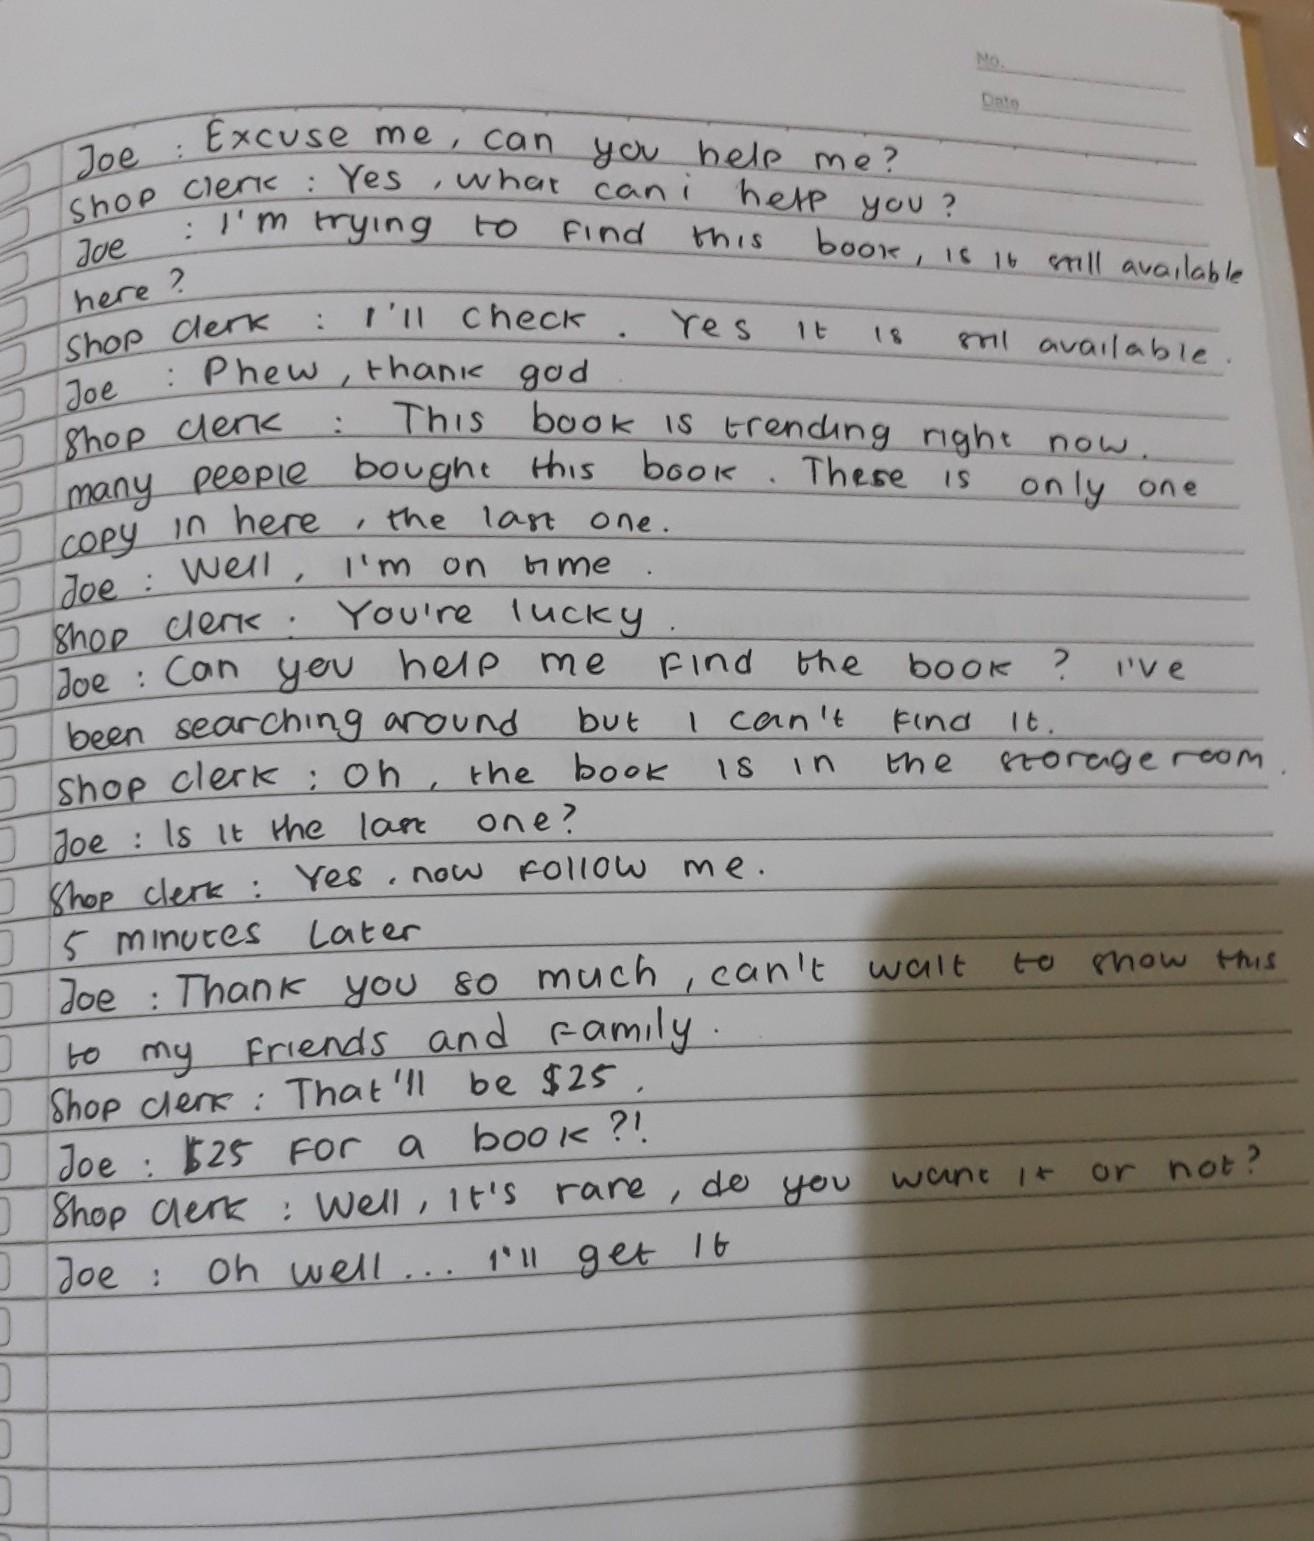 No.
Date
Joe : Excuse me, can you help me?
Shop clerk : Yes, what can i help you?
Joe : I'm trying to find this book, is it still available
here?
Shop clerk : I'll check. Yes it is still available.
Joe : Phew, thank god
Shop clerk : This book is trending right now.
many people bought this book. These is only one
copy in here, the last one.
Joe : Well, I'm on time.
Shop clerk : You're lucky.
Joe : Can you help me find the book? I've
been searching around but I can't find it.
Shop clerk : Oh, the book is in the storage room.
Joe : Is it the last one?
Shop clerk : Yes, now follow me.
5 minutes Later
Joe : Thank you so much, can't wait to show this
to my friends and family.
Shop clerk : That'll be $25.
Joe : $25 for a book?!
Shop clerk : Well, it's rare, do you want it or not?
Joe : Oh well... I'll get it